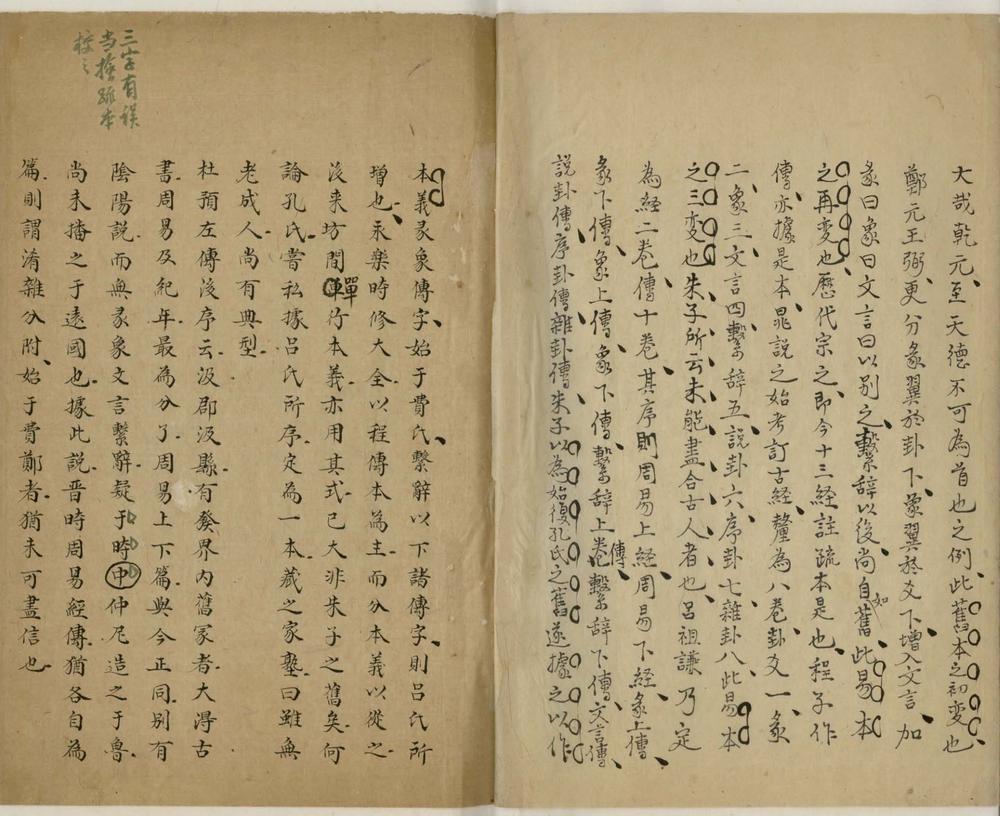 大哉乾元至天德不可為首也之例此舊本之初變也
鄭元王弼更分彖翼於卦下象翼於爻下增入文言加
彖曰象曰文言曰以別之繫辞以後尚自如舊此易本
之再变也歷代宗之即今十三経註疏本是也程子作
傳亦據是本晁説之始考訂古経釐為八卷卦爻一彖
二象三文言四繫辞五説卦六序卦七雜卦八此易本
之三变也朱子所云未能盡合古人者也呂祖謙乃定
為経二卷傳十卷其序則周易上経周易下経彖上傳
彖下傳象上傳象下傳繫辞上傳繫辞下傳文言傳
説卦傳序卦傳雜卦傳朱子以為始復孔氏之舊遂據之以作
本義彖象傳字始于費氏繫辭以下諸傳字則呂氏所
增也永樂時修大全以程傳本為主而分本義以從之
後来坊間單行本義亦用其式已大非朱子之舊矣何
論孔氏嘗私據呂氏所序定為一本藏之家塾曰雖無
老成人尚有典型
杜預在左傳後序云汲郡汲縣有發界内舊冢者大淂古
書周易及紀年最為分了周易上下篇與今正同别有
陰陽説而無彖象文言繫辭疑于時中仲尼造之于魯
尚未播之于遠國也據此説晋時周易經傳猶各自為
篇則謂淆雜分附始于費鄭者猶未可盡信也
三字有誤
当撿疏本
校之